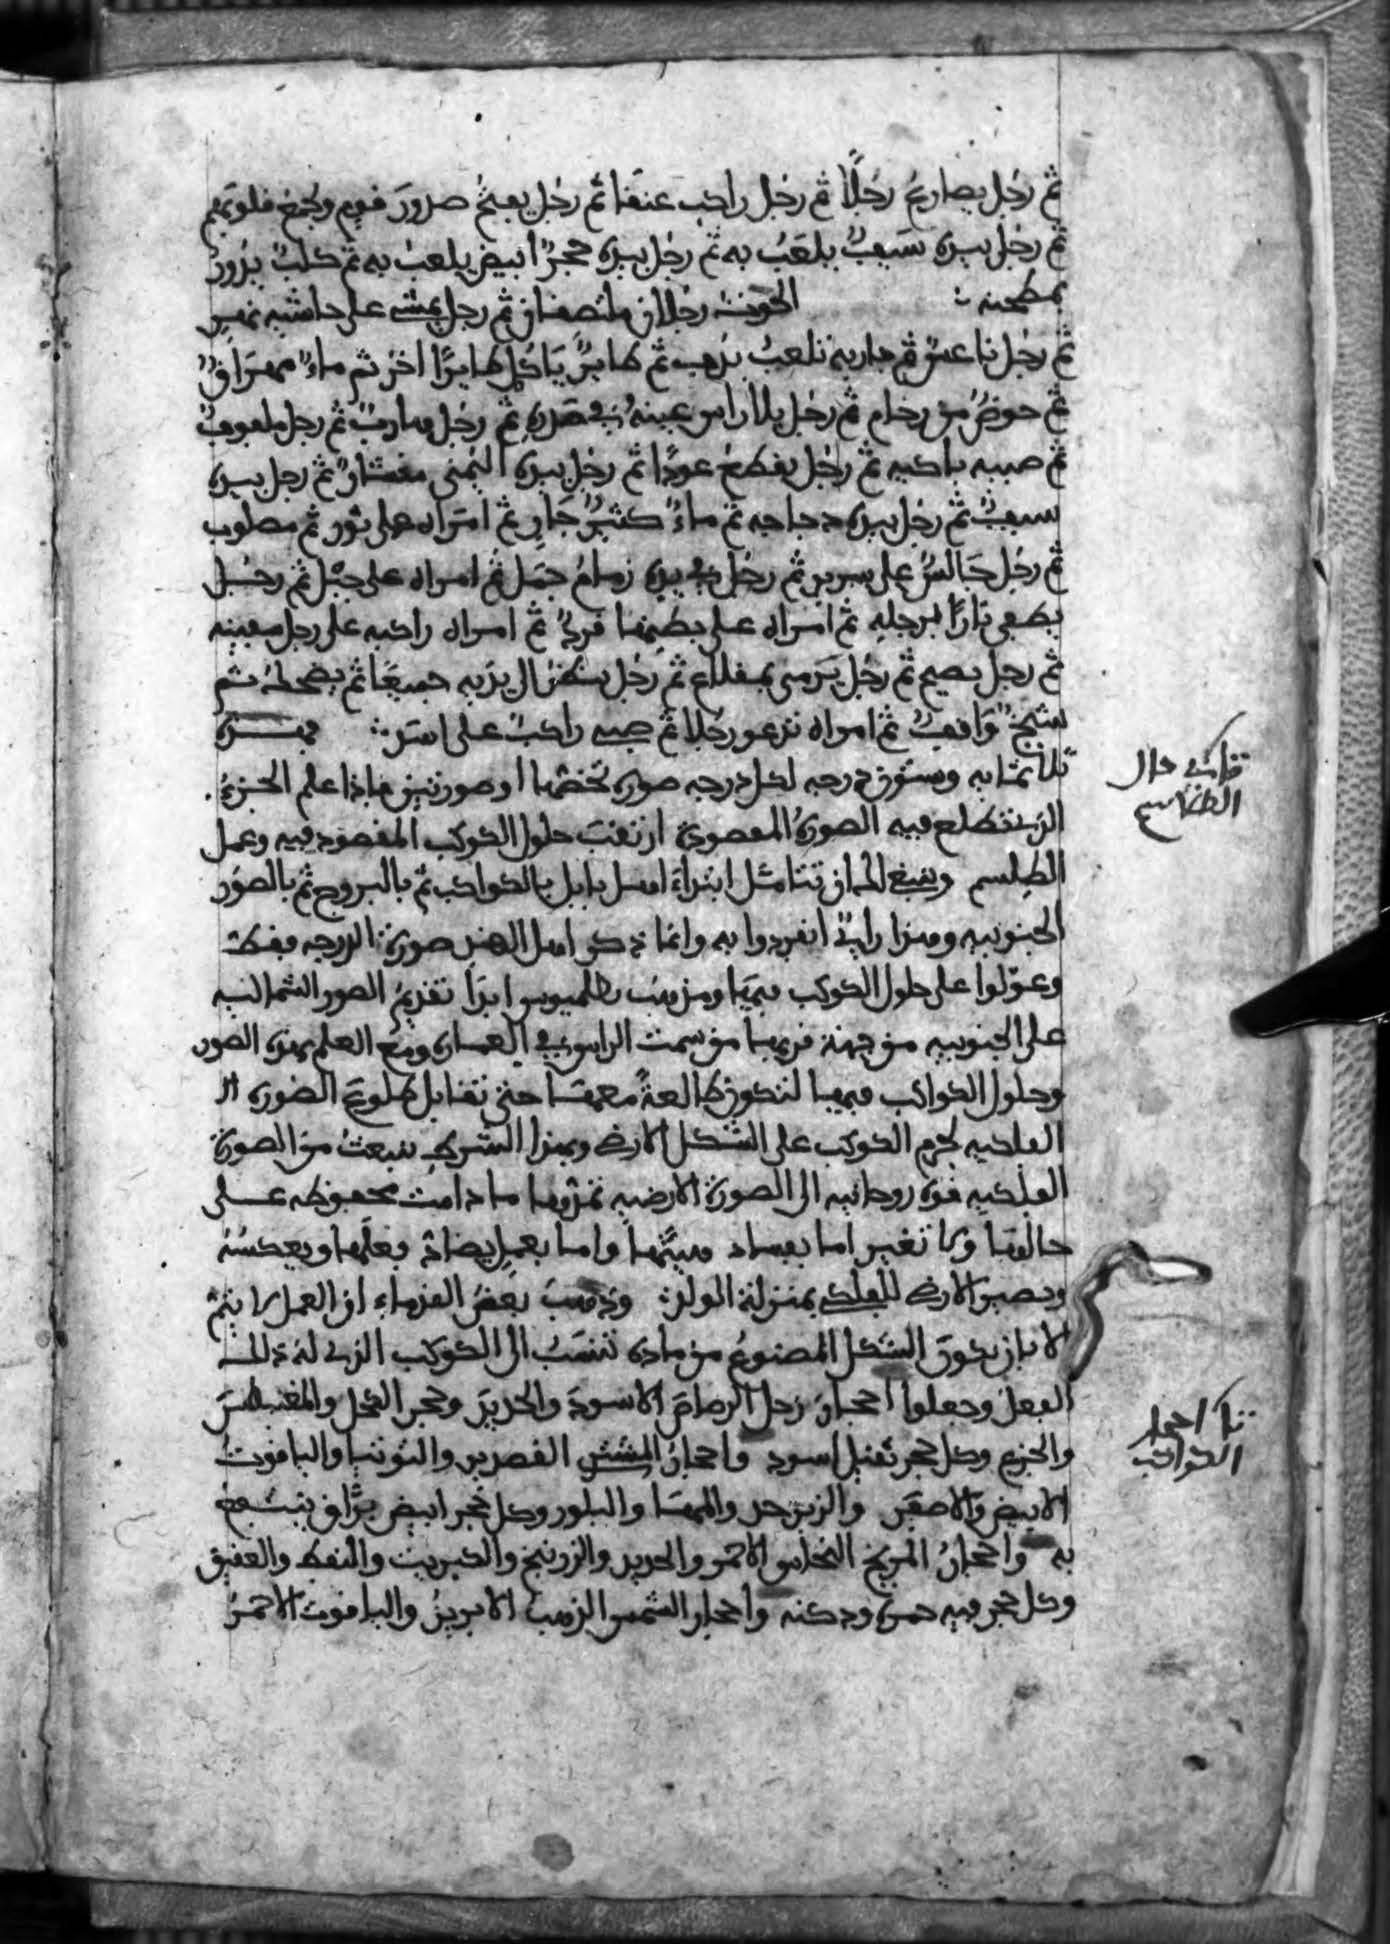 ثم رجل يصارع رجلًا ثم رجل راكب عنقا ثم رجل يعض صدور قوم ويجمع قلوبهم
ثم رجل بيده سيف يلعب به ثم رجل بيده حجرا ابيض يلعب به ثم كلب يدور
بمطحنه ∴ الحوت رجلان ملتصقان ثم رجل يمشى على حاشيه نهر
ثم رجل ناعس ثم جاريه تلعب بذهب ثم طاير ياكل طايرا اخر ثم ماء مهراق
ثم حوض من رخام ثم رجل بلا راس عينه في صدره ثم رجل هارب ثم رجل ملفوف
ثم صبيه باكيه ثم رجل يقطع عودا ثم رجل بيده اليمنى منشار ثم رجل بيده
سيف ثم رجل بيده دجاجه ثم ماء كثير جار ثم امراه على ثور ثم مصلوب
ثم رجل جالس على سرير ثم رجل في يده زمام جمل ثم امراه على جبل ثم رجل
يطفى نارا برجله ثم امراه على بطنها قرد ثم امراه راكبه على رجل سفينه
ثم رجل يصيح ثم رجل يرمى بمقلاع ثم رجل ينظر الى يديه جميعا ثم يضحك ثم
شيخ واقف ثم امراه تدعو رجلا ثم صبى راكب على اسد ∴ فهذه
ثلاثمايه وستون درجه لكل درجه صوره تخصها او صورتين فاذا علم الجزء
الذى تطلع فيه الصوره المقصوده ارتقب حلول الكوكب المقصود فيه وعمل
الطلسم وينبغى لك ان تتامل ابتداء اهل بابل بالكواكب ثم بالبروج ثم بالصور
الجنوبيه وهذا راى انفردوا به وانما ذكر اهل الهند صورة الدرجه فقط
وعولوا على حلول الكوكب فيها ومذهب بطلميوس ابدا تقديم الصور الشماليه
على الجنوبيه من جهة قربها من سمت الراس في العماره ومع العلم بهذه الصور
وحلول الكواكب فيها لتكون طالعة معها حتى تقابل طلوع الصوره ال
الفلكيه لجرم الكوكب على الشكل الارضى وبهذا السر ينبعث من الصورة
الفلكيه قوه روحانيه الى الصورة الارضيه تمدها ما دامت محفوظه على
حالها ولا تتغير اما بفساد هيئتها واما بعمل يضاد فعلها ويعكسه
ويصير الارضى للفلكى بمنزلة المولد ∴ وذهب بعض القدماء ان العمل لا يتم
الا بان يكون الشكل المصنوع من ماده تنسب الى الكوكب الذى له ذلك
الفعل وجعلوا احجار زحل الرصاص الاسود والحديد وحجر الكحل والمغنطيس
والجزع وكل حجر ثقيل اسود واحجار المشترى القصدير والتوتيا والياقوت
الابيض والاصفر والزبرجد والمها والبلور وكل حجر ابيض براق ينتفع
به واحجار المريخ النحاس الاحمر والحديد والزرنيخ والكبريت والنفط والعقيق
وكل حجر فيه حمره ودكنه واحجار الشمس الذهب الابريز والياقوت الاحمر
الطلاسم
احجار
الكواكب